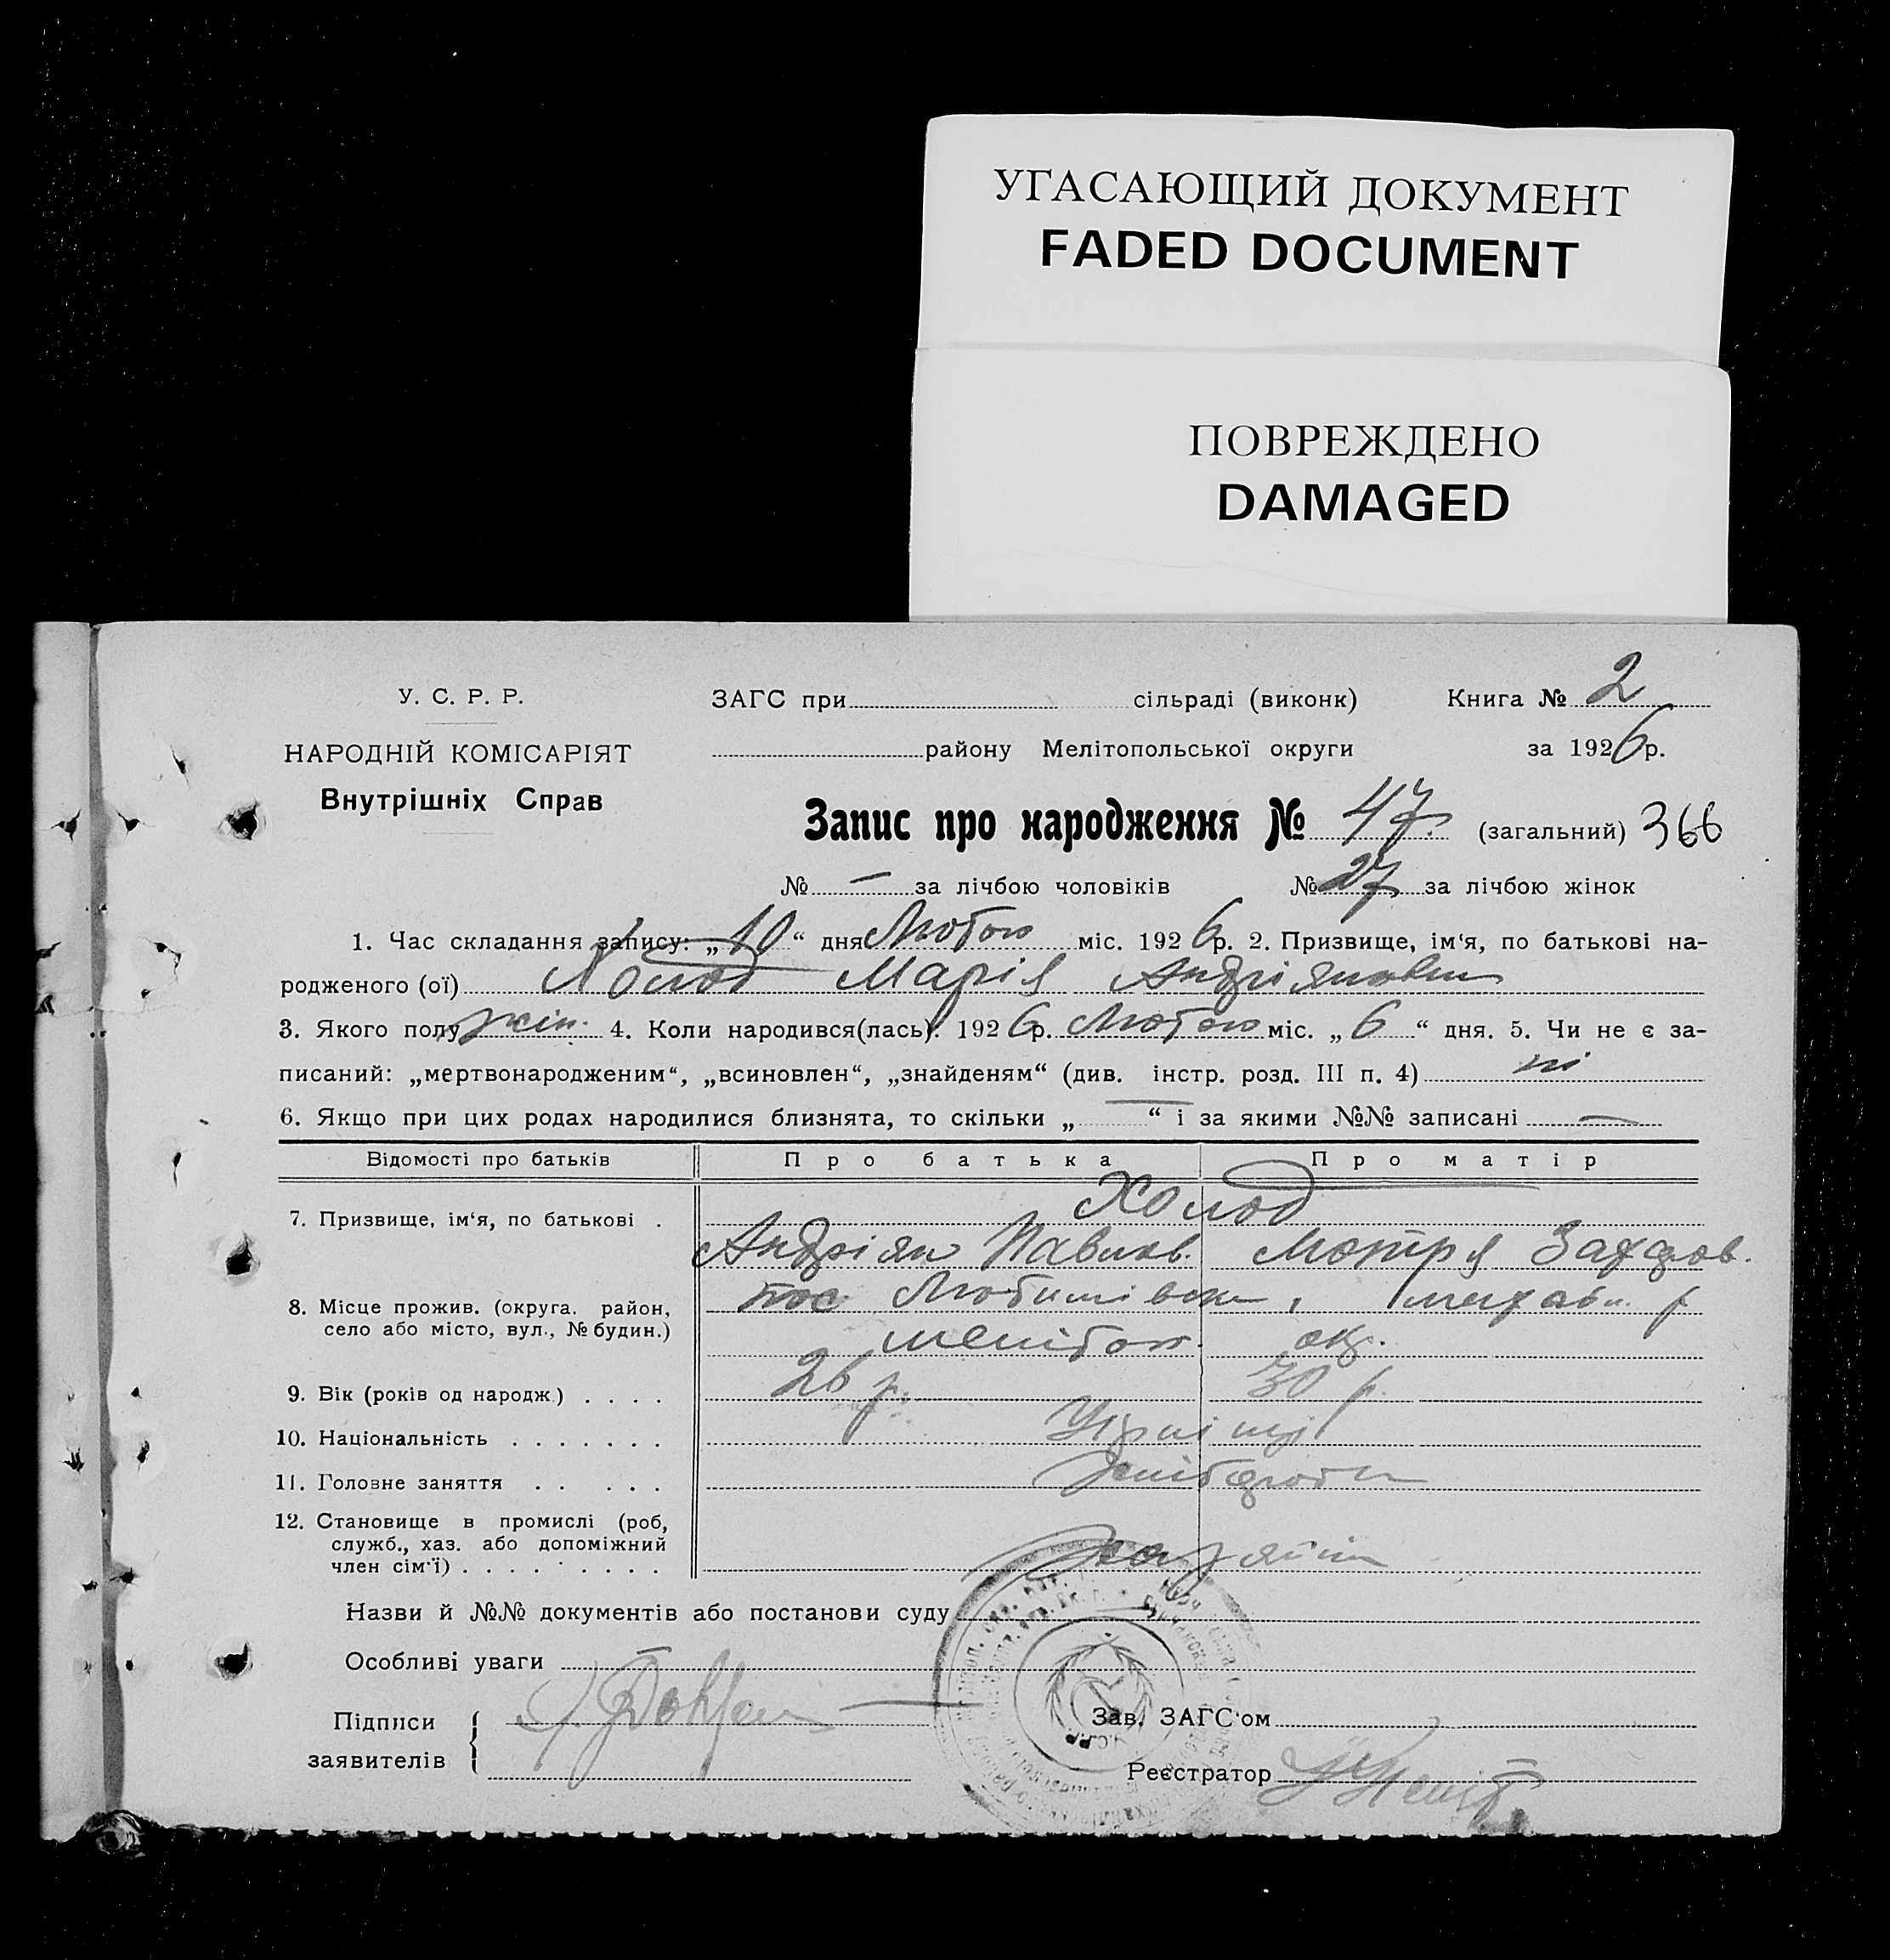 УГАСАЮЩИЙ ДОКУМЕНТ
FADED DOCUMENT
ПОВРЕЖДЕНО
DAMAGED
У. С. Р. Р.
НАРОДНІЙ КОМІСАРІЯТ
Внутрішніх Справ
ЗАГС при сільраді (виконк) Книга № 2
району Мелітопольської округи за 1926 р.
Запис про народження № 47 (загальний) 366
№ — за лічбою чоловіків № 27 за лічбою жінок
1. Час складання запису: „10“ дня Лютого міс. 1926 р. 2. Призвище, ім‘я, по батькові на-
родженого (ої) Холод Марія Андріяновна
3. Якого полу жін. 4. Коли народився(лась): 1926 р. Лютого міс. „6“ дня. 5. Чи не є за-
писаний: „мертвонародженим“, „всиновлен“, „знайденям“ (див. інстр. розд. III п. 4) ні
6. Якщо при цих родах народилися близнята, то скільки „—“ і за якими №№ записані —
Відомості про батьків Про батька Про матір
Холод
7. Призвище, ім‘я, по батькові . Андріян Павлов. Мотря Захаров.
8. Місце прожив. (округа. район, село або місто, вул., № будин.) пос Любимівка, михайл. р
меліток. окр.
9. Вік (років од народж.) . . . . 26 р. 30 р.
10. Національність . . . . . . . Українці
11. Головне заняття . . . . . хлібороби
12. Становище в промислі (роб,
служб., хаз. або допоміжний
член сім‘ї) . . . . . . . . хазяїни
Назви й №№ документів або постанови суду
Особливі уваги
Підписи
заявителів
Зав. ЗАГС‘ом
Реєстратор
У.С.Р.Р.